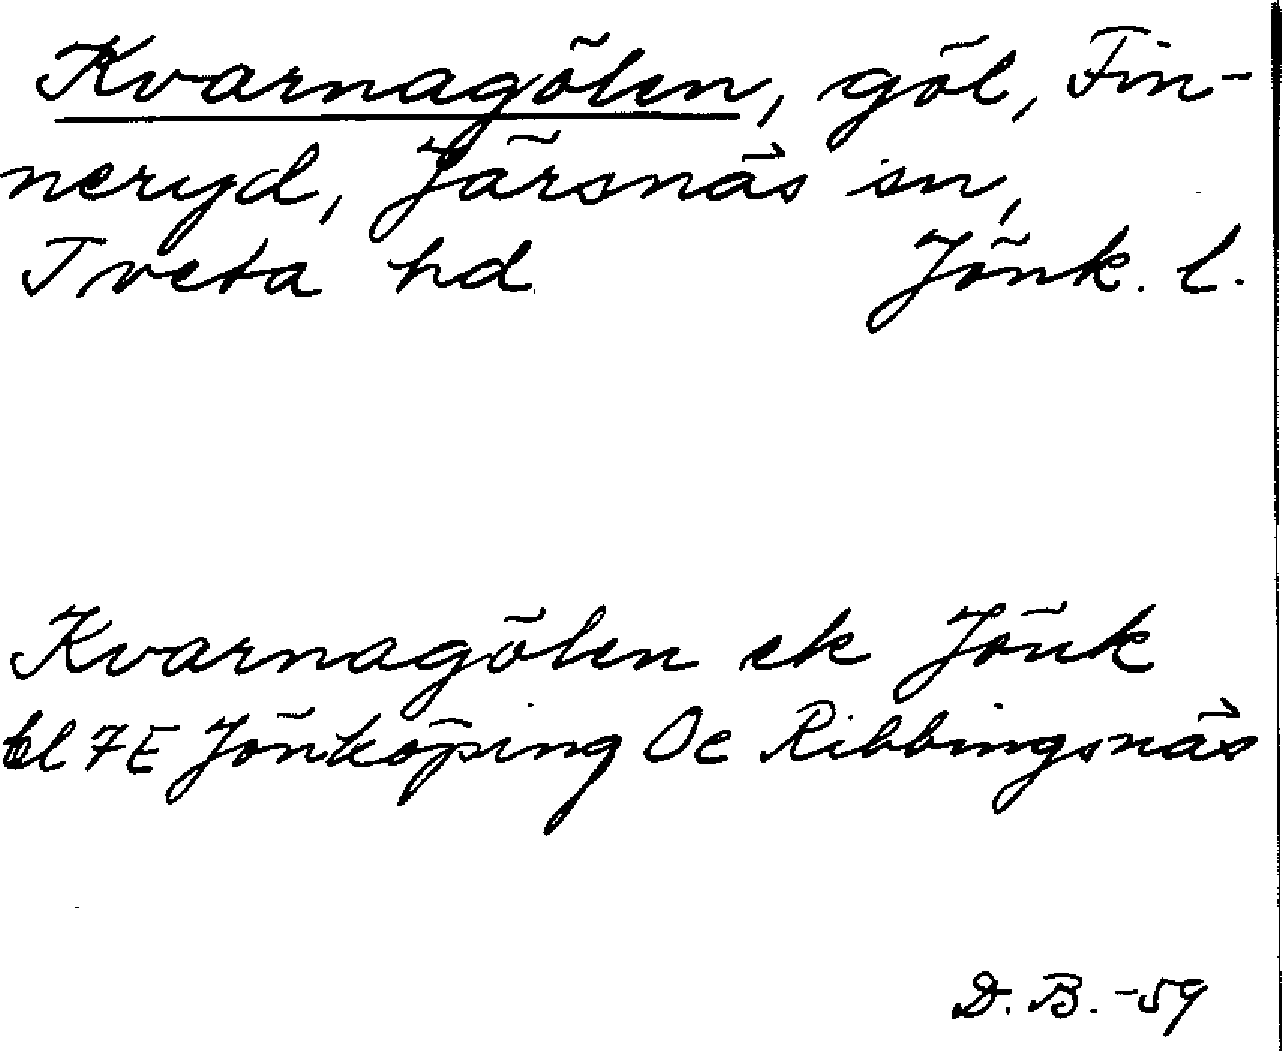 Kvarnagölen, göl, Fin-
neryd, Järsnäs sn,
Tveta hd Jönk. l.
Kvarnagölen ek Jönk
bl 7E Jönköping Öe Ribbingsnäs
D. B. -59